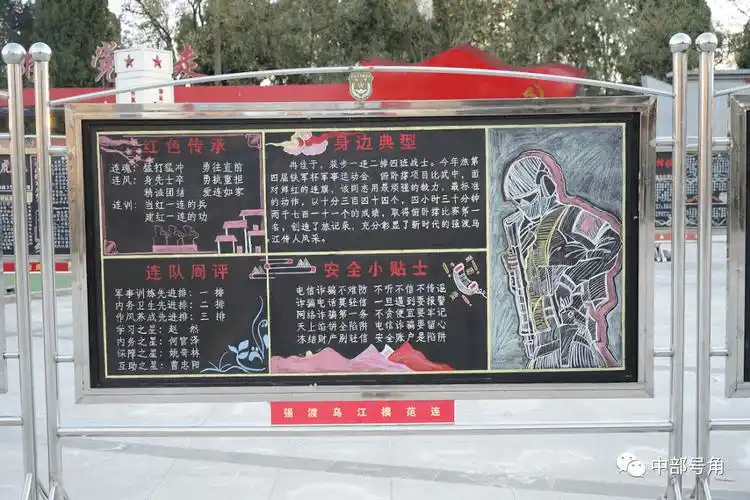 党走
红色传承
连魂：猛打猛冲 勇往直前
连风：身先士卒 勇挑重担
精诚团结 爱连如家
连训：当红一连的兵
建红一连的功
身边典型
冉佳于，装步一连二排四班战士。今年旅第
四届铁军杯军事运动会，俯卧撑项目比武中，面
对鲜红的连旗，该同志用最顽强的毅力，最标准
的动作，以十分三百四十四个，四小时三十分钟
两千七百一十一个的成绩，取得俯卧撑比赛第一
名，创造了旅记录，充分彰显了新时代的强渡乌
江传人风采。
连队周评
军事训练先进排：一排
内务卫生先进排：二排
作风养成先进排：三排
学习之星：赵然
内务之星：何官泽
保障之星：姚奇林
互助之星：曹忠阳
安全小贴士
电信诈骗不难防 不听不信不传谣
诈骗电话莫轻信 一旦遇到要报警
网络诈骗第一条 不贪便宜要牢记
天上馅饼全陷阱 电信诈骗要留心
冻结财产别轻信 安全账户是陷阱
强渡乌江模范连
中部号角